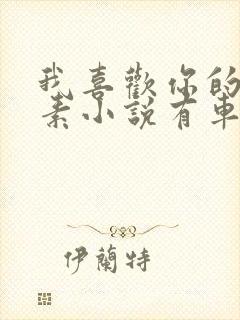 我喜歡你的
素小說有車
伊蘭特